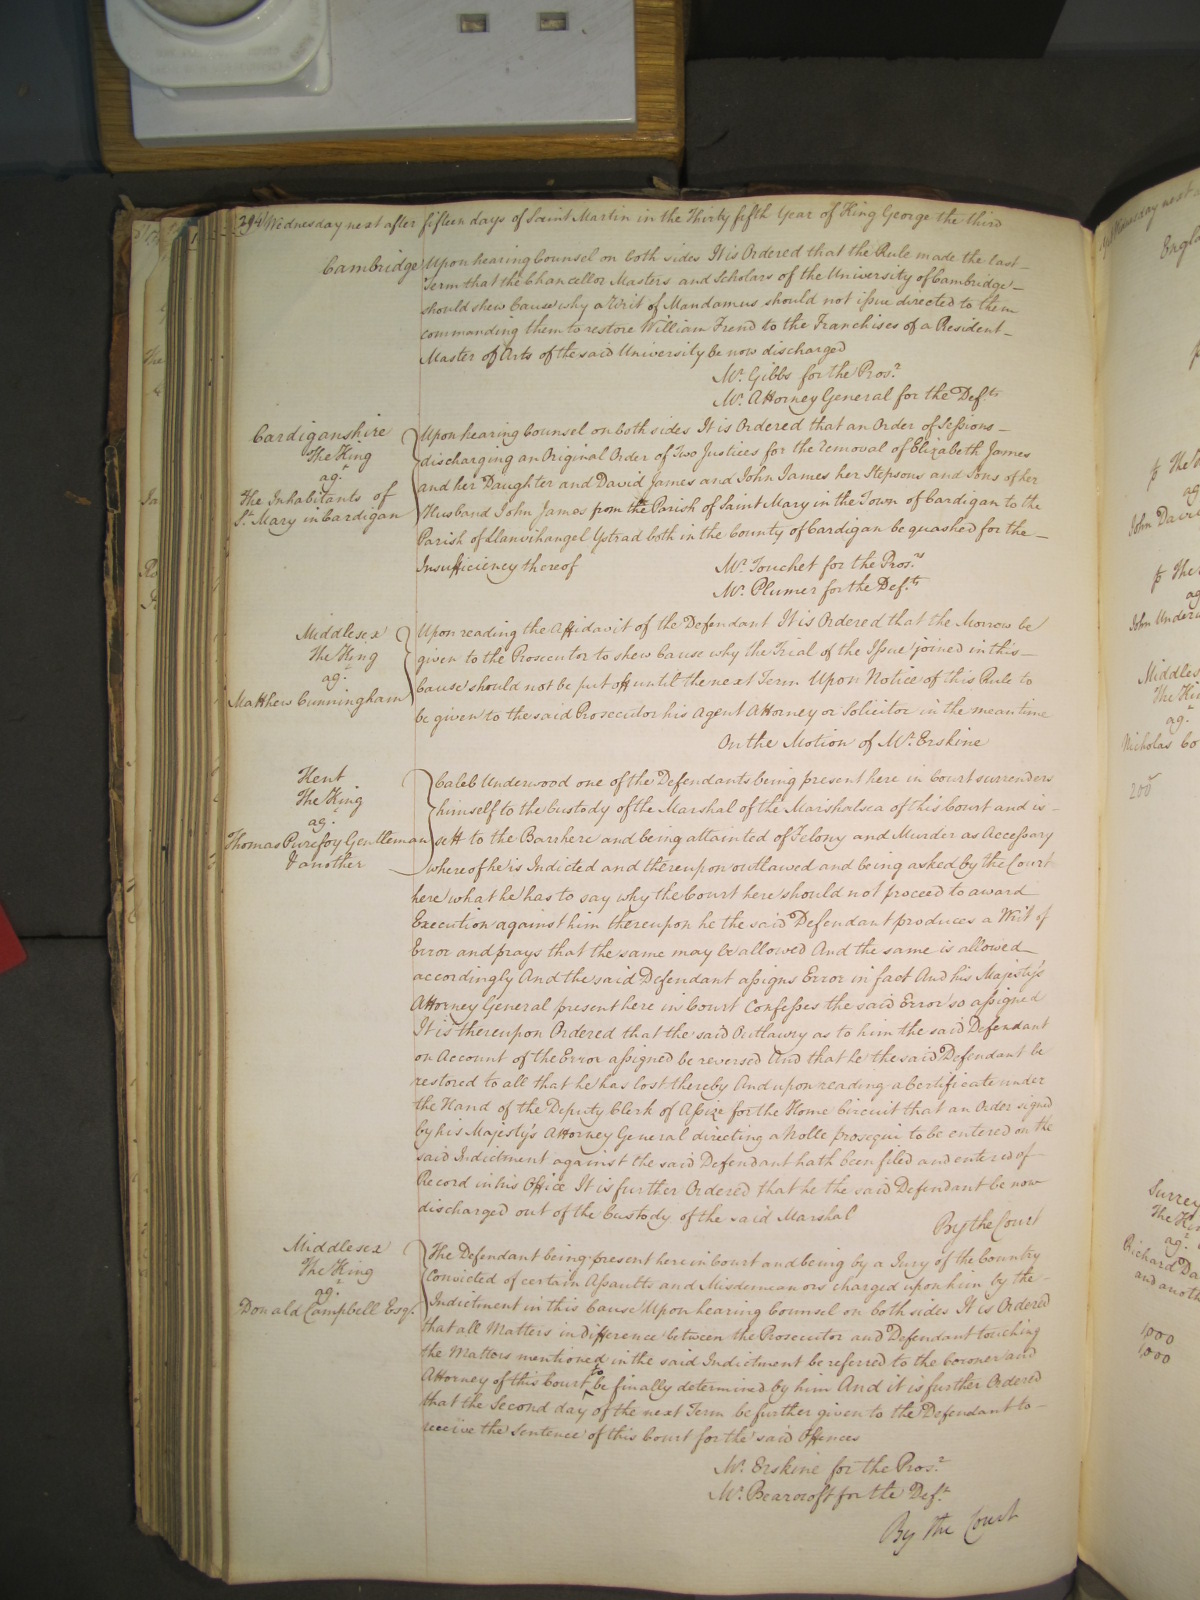 294 Wednesday next after fifteen days of Saint Martin in the Thirty fifth Year of King George the third
Cambridge Upon hearing Counsel on both sides It is Ordered that the Rule made the last
Term that the Chancellor Masters and Scholars of the University of Cambridge
should shew Cause why a Writ of Mandamus should not issue directed to them
commanding them to restore William Frend to the Franchises of a Resident
Master of Arts of the said University be now discharged
Mr. Gibbs for the Prosr.
Mr. Attorney General for the Defts.
Cardiganshire
The King
agt.
The Inhabitants of
St. Mary in Cardigan
Upon hearing Counsel on both sides It is Ordered that an Order of Sessions
discharging an Original Order of Two Justices for the removal of Elizabeth James
and her Daughter and David James and John James her Stepsons and Sons of her
Husband John James from the Parish of Saint Mary in the Town of Cardigan to the
Parish of Llanvihangel Ystrad both in the County of Cardigan be quashed for the
Insufficiency thereof
Mr. Touchet for the Prosrs.
Mr. Plumer for the Defts.
Middlesex
The King
agt.
Matthew Cunningham
Upon reading the Affidavit of the Defendant It is Ordered that the Morrow be
given to the Prosecutor to shew Cause why the Trial of the Issue joined in this
Cause should not be put off until the next Term Upon Notice of this Rule to
be given to the said Prosecutor his Agent Attorney or Solicitor in the mean time
On the Motion of Mr. Erskine
Kent
The King
agt.
Thomas Purefoy Gentleman
& another
Caleb Underwood one of the Defendants being present here in Court surrenders
himself to the Custody of the Marshal of the Marshalsea of this Court and is
sett to the Barr here and being attainted of Felony and Murder as Accessary
whereof he is Indicted and thereupon outlawed and being asked by the Court
here what he has to say why the Court here should not proceed to award
Execution against him thereupon he the said Defendant produces a Writ of
Error and prays that the same may be allowed And the same is allowed
accordingly And the said Defendant assigns Error in fact And his Majesty's
Attorney General present here in Court Confesses the said Error so assigned
It is thereupon Ordered that the said Outlawry as to him the said Defendant
on Account of the Error assigned be reversed And that he the said Defendant be
restored to all that he has lost thereby And upon reading a Certificate under
the Hand of the Deputy Clerk of Assize for the Home Circuit that an Order signed
by his Majesty's Attorney General directing a Nolle prosequi to be entered on the
said Indictment against the said Defendant hath been filed and entered of
Record in his Office It is further Ordered that he the said Defendant be now
discharged out of the Custody of the said Marshal
By the Court
Middlesex
The King
agt.
Donald Campbell Esqr.
The Defendant being present here in Court and being by a Jury of the Country
Convicted of certain Assaults and Misdemeanors charged upon him by the
Indictment in this Cause Upon hearing Counsel on both sides It is Ordered
that all Matters in difference between the Prosecutor and Defendant touching
the Matters mentioned in the said Indictment be referred to the Coroner and
Attorney of this Court to be finally determined by him And it is further Ordered
that the Second day of the next Term be further given to the Defendant to
receive the Sentence of this Court for the said Offences
Mr. Erskine for the Prosr.
Mr. Bearcroft for the Deft.
By the Court
Middles
agt.
Nicholas
200
Surrey
agt.
Richard
1000
1000